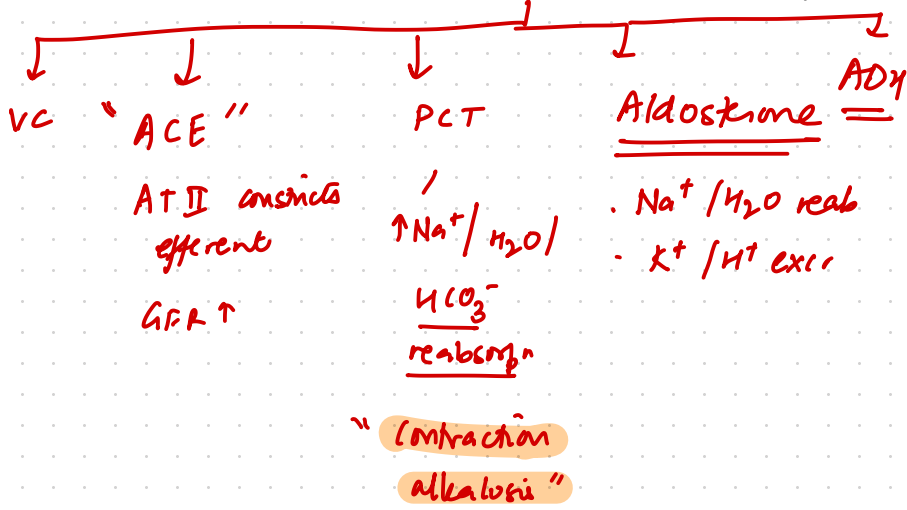 VC
"ACE"
AT II constricts
efferent
GFR ↑
PCT
↑ Na⁺ / H₂O /
HCO₃⁻
reabsorpⁿ
"Contraction
alkalosis"
Aldosterone
· Na⁺ / H₂O reab
· K⁺ / H⁺ excr
ADH